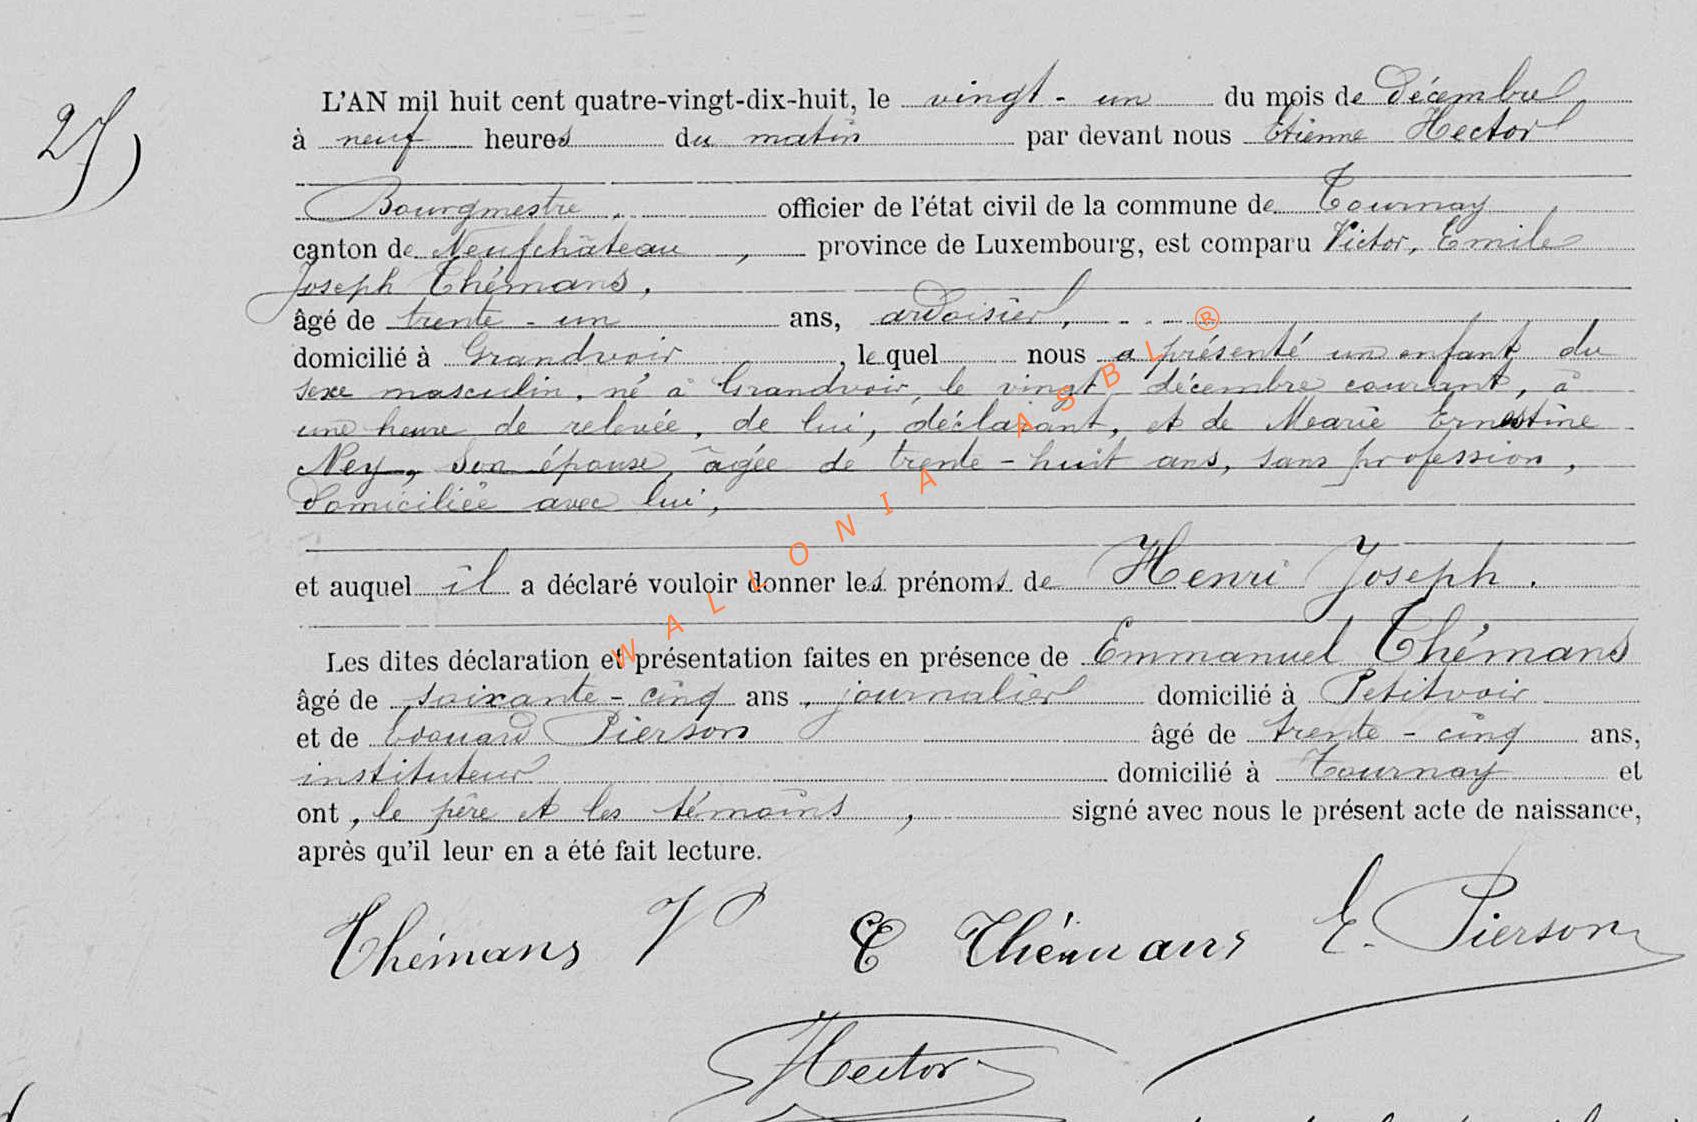 27)
L'AN mil huit cent quatre-vingt-dix-huit, le vingt-un du mois de Décembre
à neuf heures du matin par devant nous Etienne Hector
Bourgmestre, officier de l'état civil de la commune de Tournay
canton de Neufchâteau, province de Luxembourg, est comparu Victor, Emile
Joseph Thémans,
âgé de trente-un ans, ardoisier,
domicilié à Grandvoir, lequel nous a présenté un enfant du
sexe masculin, né à Grandvoir, le vingt décembre courant, à
une heure de relevée, de lui, déclarant, et de Marie Ernestine
Ney, son épouse, âgée de trente-huit ans, sans profession,
domiciliée avec lui,
et auquel il a déclaré vouloir donner les prénoms de Henri Joseph.
Les dites déclaration et présentation faites en présence de Emmanuel Thémans
âgé de soixante-cinq ans, journalier domicilié à Petitvoir
et de Edouard Pierson âgé de trente-cinq ans,
instituteur domicilié à Tournay et
ont, le père et les témoins, signé avec nous le présent acte de naissance,
après qu'il leur en a été fait lecture.
Thémans V E Thémans E. Pierson
Hector
WALLONIA ASBL ®